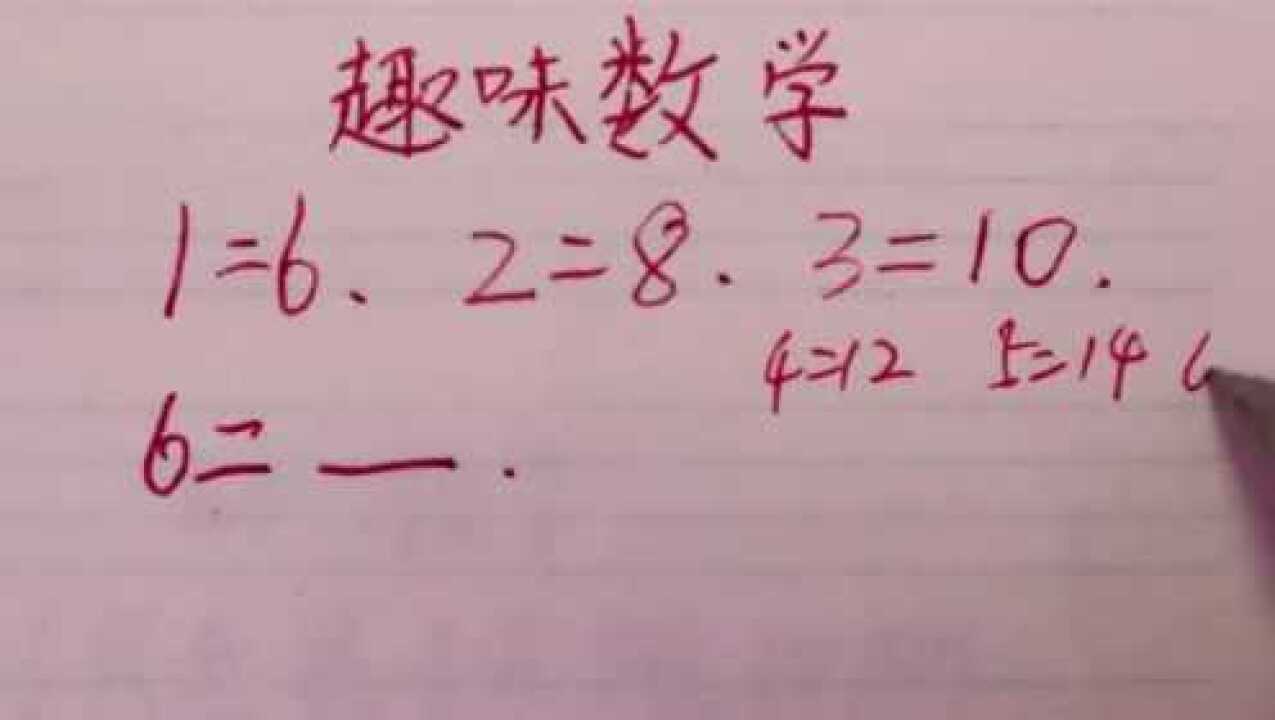 趣味数学
1=6、 2=8. 3=10.
4=12 5=14
6= — .